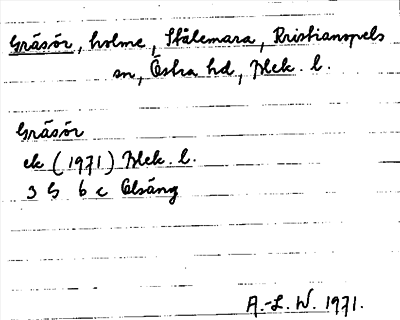 Gräsör, holme, Stålemara, Kristianopels
sn, Östra hd, Blek. l.
Gräsör
ek (1971) Blek. l.
3 G 6 c Olsäng
A.-L. W. 1971.